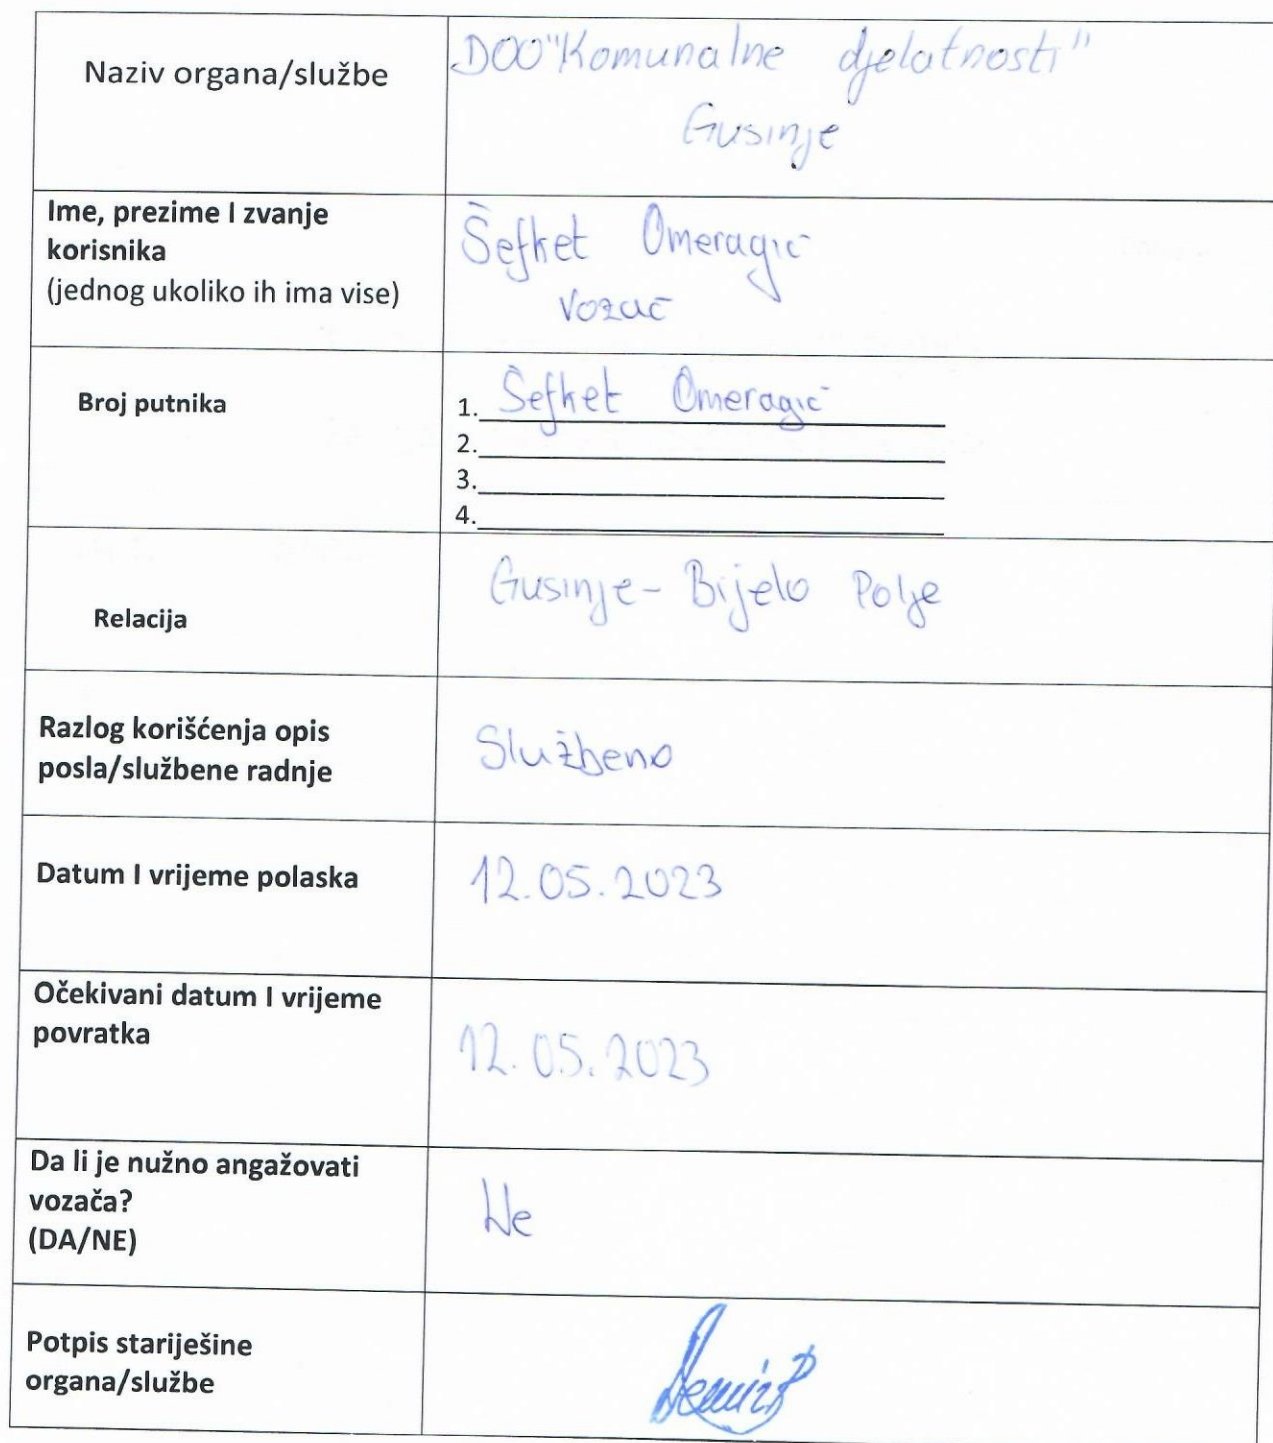 Naziv organa/službe
DOO "Komunalne djelatnosti"
Gusinje
Ime, prezime I zvanje
korisnika
(jednog ukoliko ih ima vise)
Šefket Omeragić
vozač
Broj putnika
1. Šefket Omeragić
2.
3.
4.
Relacija
Gusinje - Bijelo Polje
Razlog korišćenja opis
posla/službene radnje
Službeno
Datum I vrijeme polaska
12.05.2023
Očekivani datum I vrijeme
povratka
12.05.2023
Da li je nužno angažovati
vozača?
(DA/NE)
Ne
Potpis stariješine
organa/službe